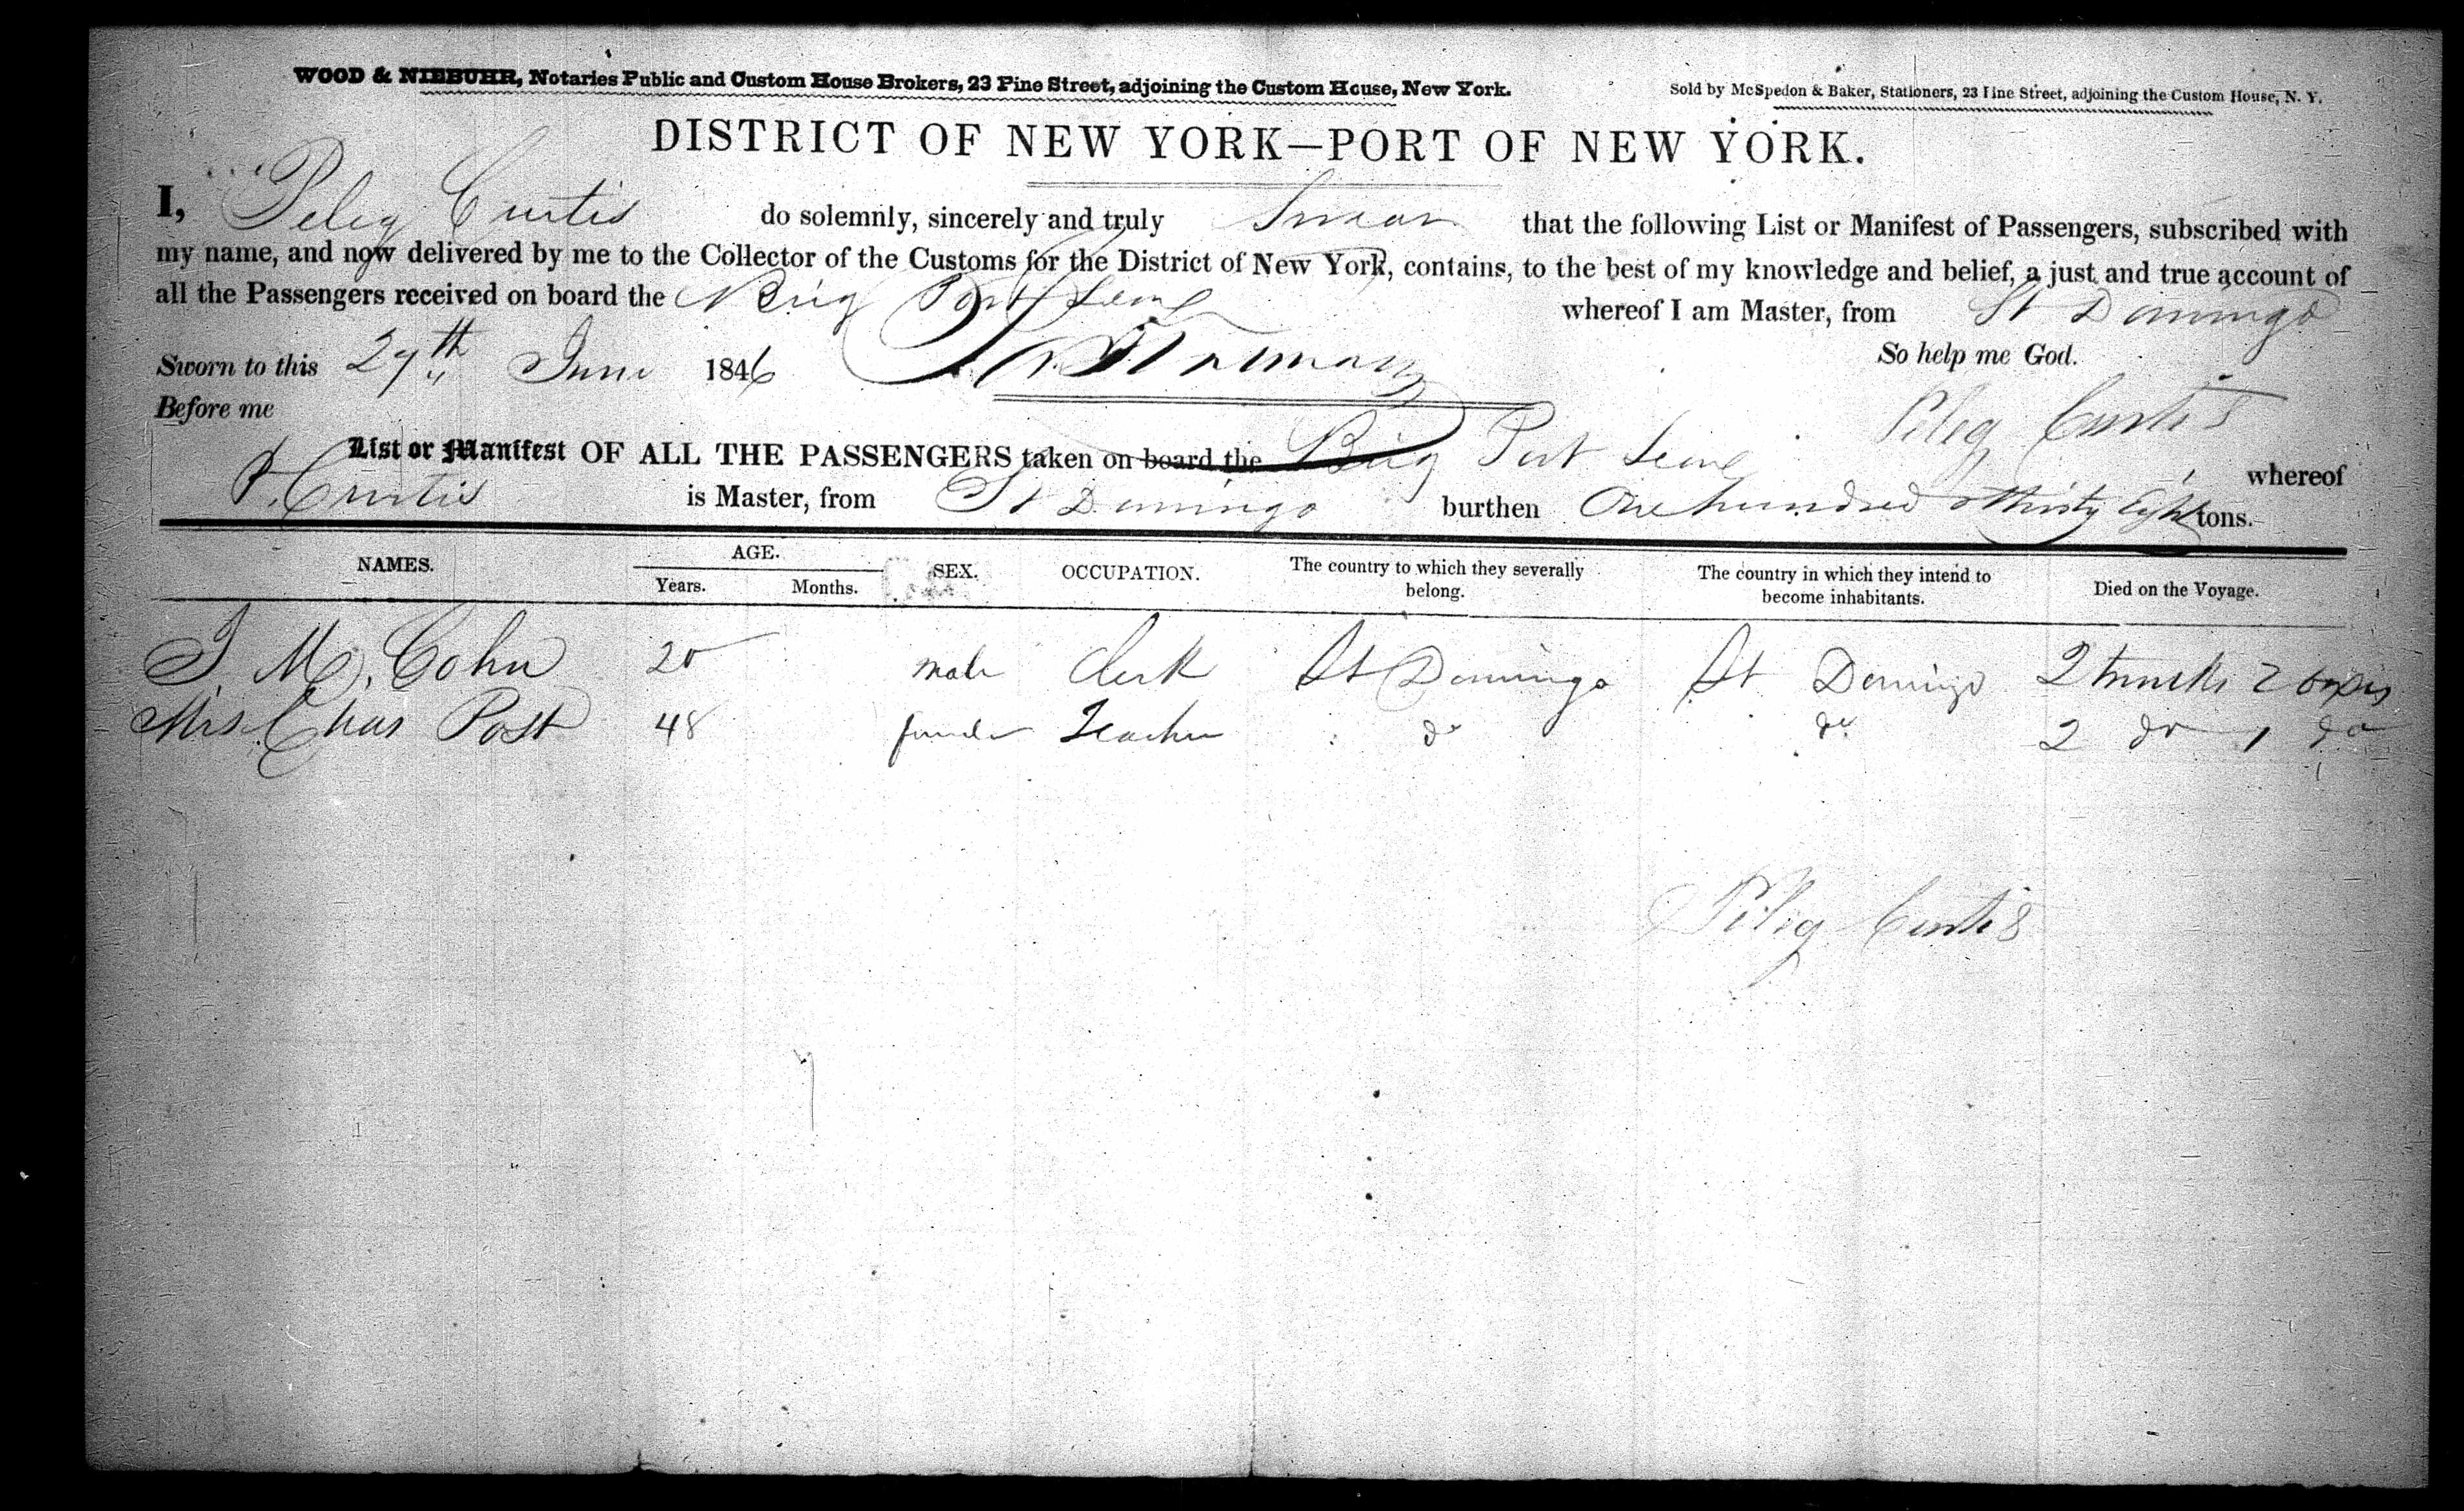 WOOD & NIEBUHR, Notaries Public and Custom House Brokers, 23 Pine Street, adjoining the Custom House, New York.
Sold by McSpedon & Baker, Stationers, 23 Pine Street, adjoining the Custom House, N. Y.
DISTRICT OF NEW YORK—PORT OF NEW YORK.
I, Peleg Curtis do solemnly, sincerely and truly Swear that the following List or Manifest of Passengers, subscribed with
my name, and now delivered by me to the Collector of the Customs for the District of New York, contains, to the best of my knowledge and belief, a just and true account of
all the Passengers received on board the Brig Port Leone whereof I am Master, from St Domingo
Sworn to this 27th June 1846 So help me God.
Before me Peleg Curtis
List or Manifest OF ALL THE PASSENGERS taken on board the Brig Port Leone whereof
P. Curtis is Master, from St Domingo burthen One hundred & thirty Eight tons.
NAMES. AGE. Years. Months. SEX. OCCUPATION. The country to which they severally belong. The country in which they intend to become inhabitants. Died on the Voyage.
J. M. Cohn 20 male Clerk St Domingo St Domingo 2 trunks 2 boxes
Mrs Chas Post 48 female Teacher do do 2 do 1 do
Peleg Curtis